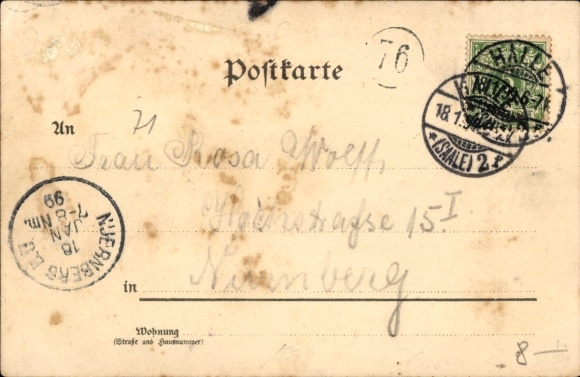 76
Postkarte
HALLE
18.1.
*(SAALE) 2.r*
An
71
Frau Rosa Wolff,
15 I
Nürnberg
in
NUERNBERG
18
JAN
7-8 Nm
99
Wohnung
(Straße und Hausnummer)
8 —